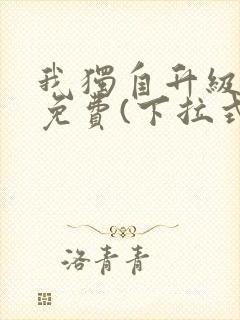 我獨自升級
免費(下拉式
洛青青